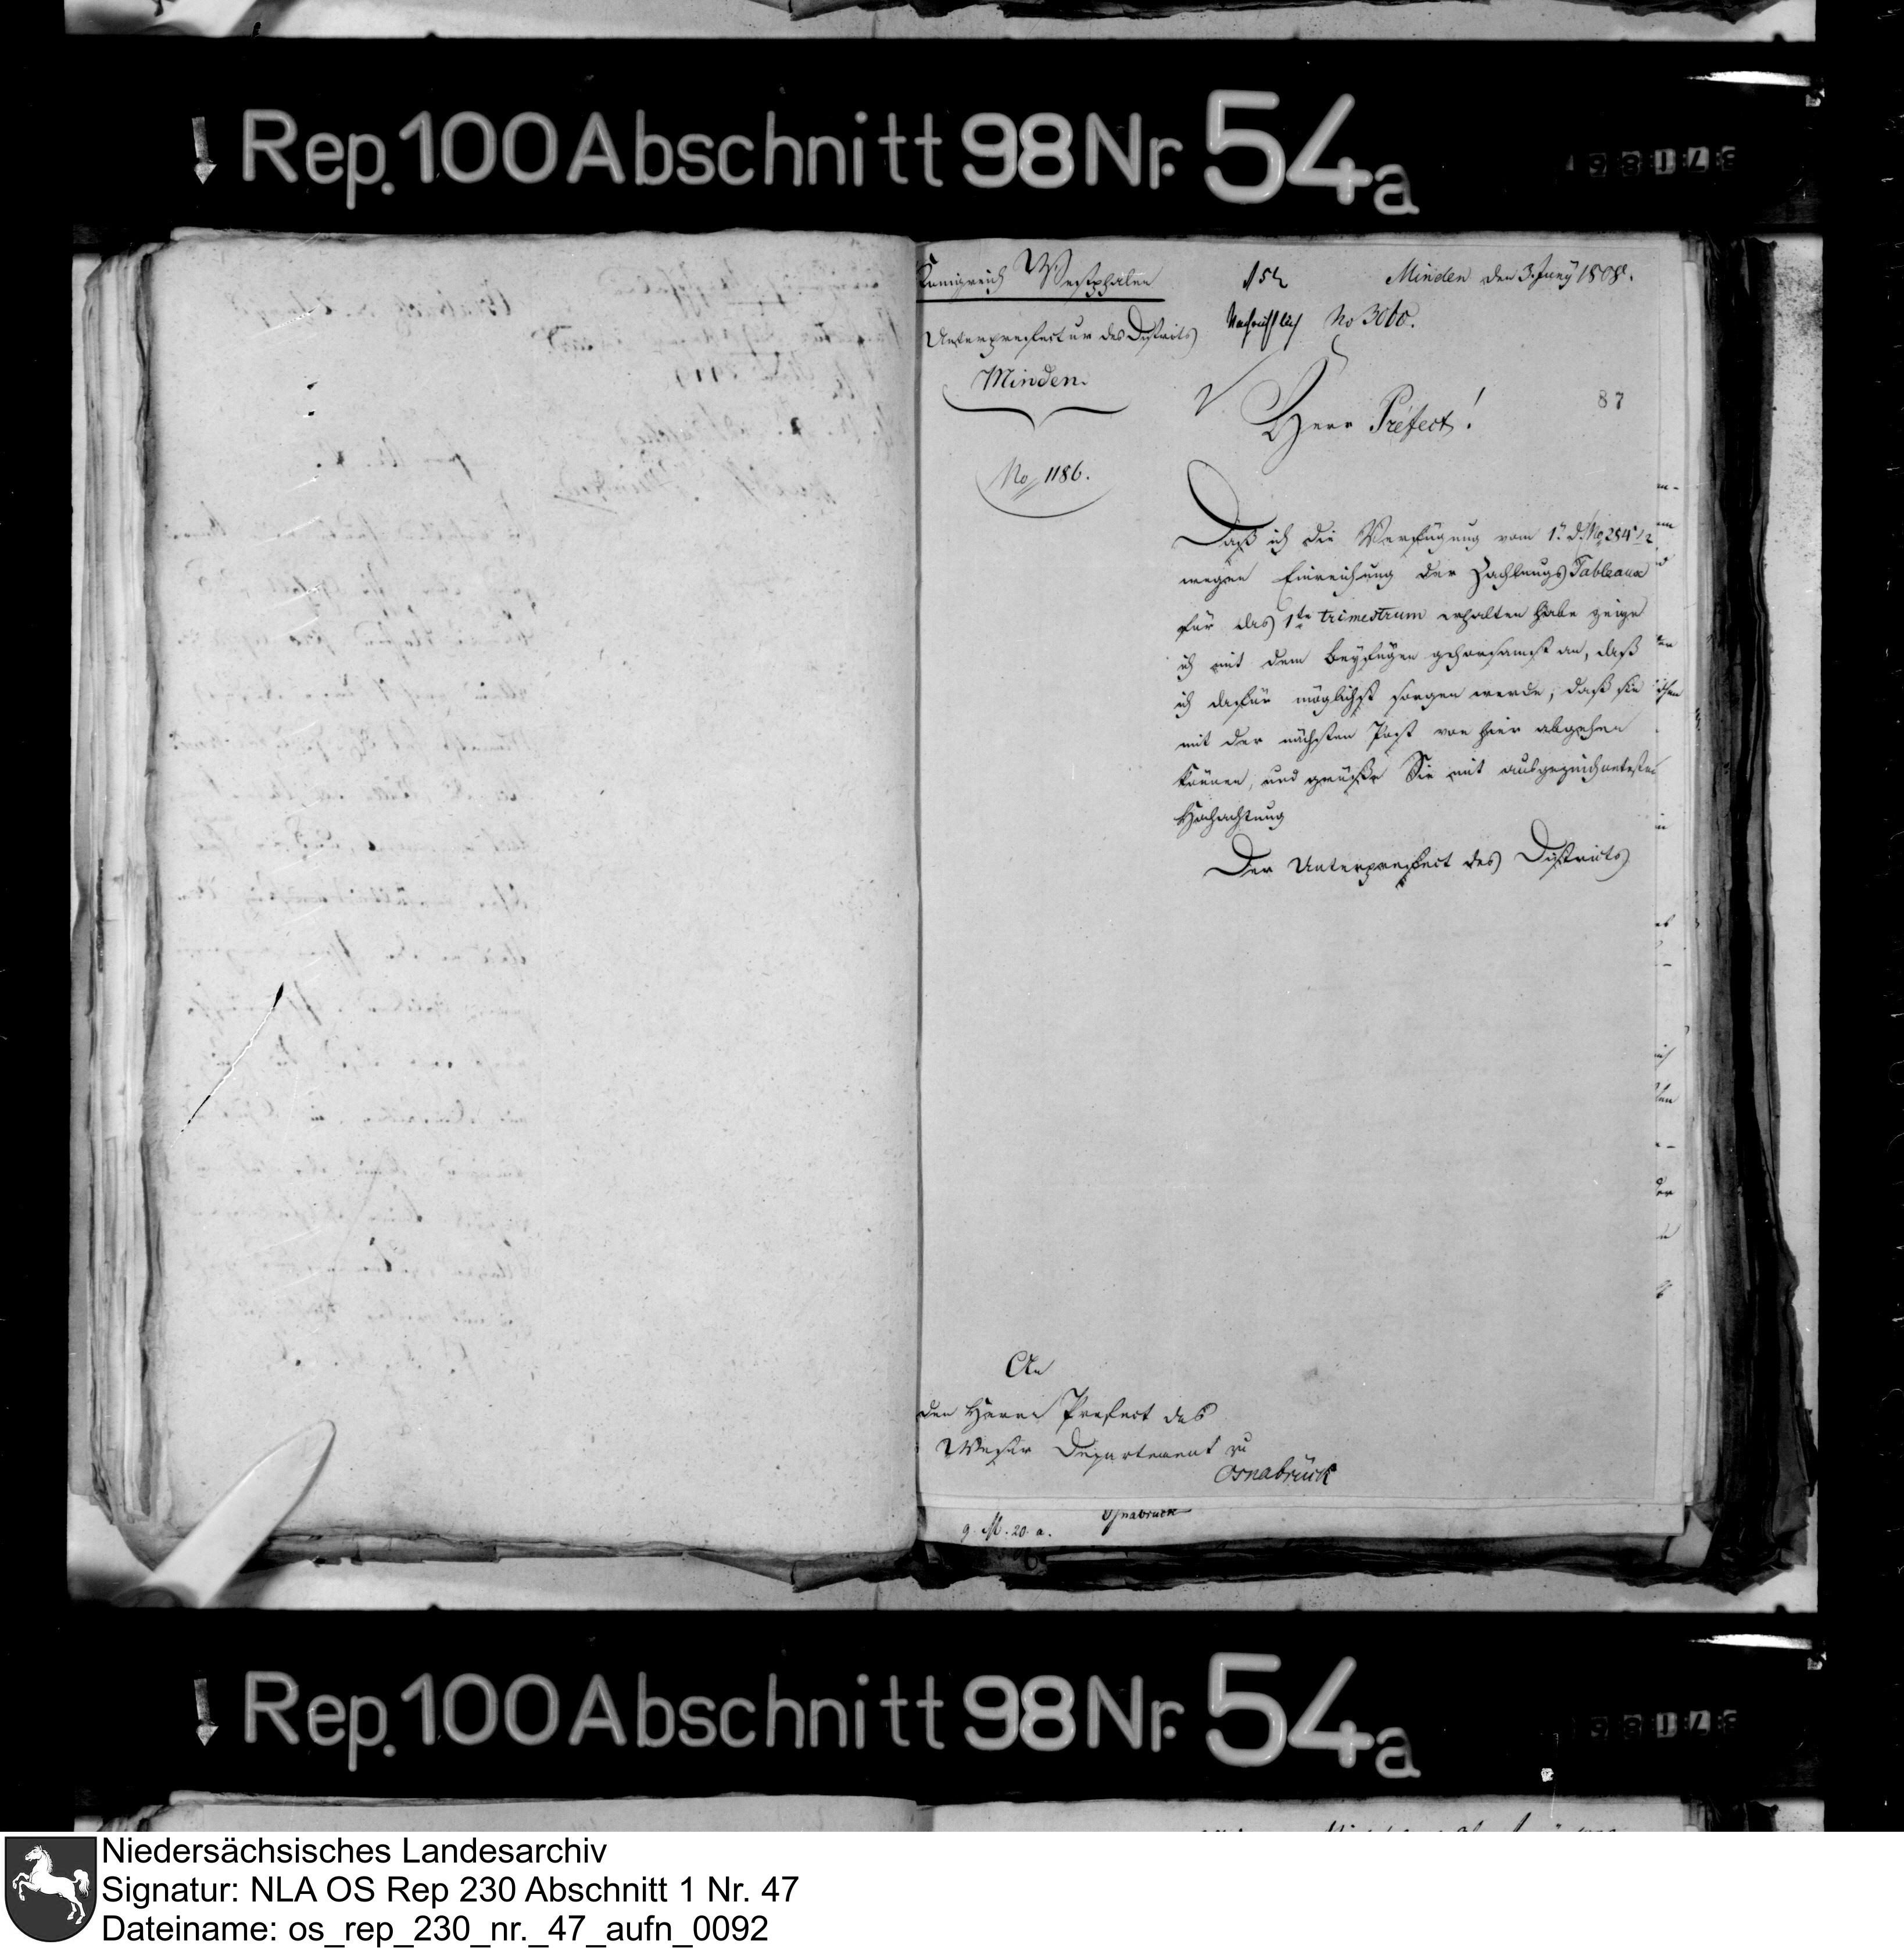 Rep. 100 Abschnitt 98 Nr. 54a
Königreich Westphalen
Unterpraefectur des Districts
Minden.
No 1186.
Minden den 3. Juny 1808.
No 3060.
87
Herr Préfect!
Daß ich die Verfügung vom 1t d.
wegen Einreichung der Zahlungs Tableaux
für das 1te trimestrum erhalten habe zeige
ich mit dem Beyfügen gehorsamst an, daß
ich dafür möglichst sorgen werde, daß sie
mit der nächsten Post von hier abgehen
können, und grüße Sie mit ausgezeichnetester
Hochachtung
Der Unterpraefect des Districts
An
den Herrn Prefect des
Weser Departement zu
Osnabrück
Osnabrück
9. M. 20. a.
Rep. 100 Abschnitt 98 Nr. 54a
Niedersächsisches Landesarchiv
Signatur: NLA OS Rep 230 Abschnitt 1 Nr. 47
Dateiname: os_rep_230_nr._47_aufn_0092